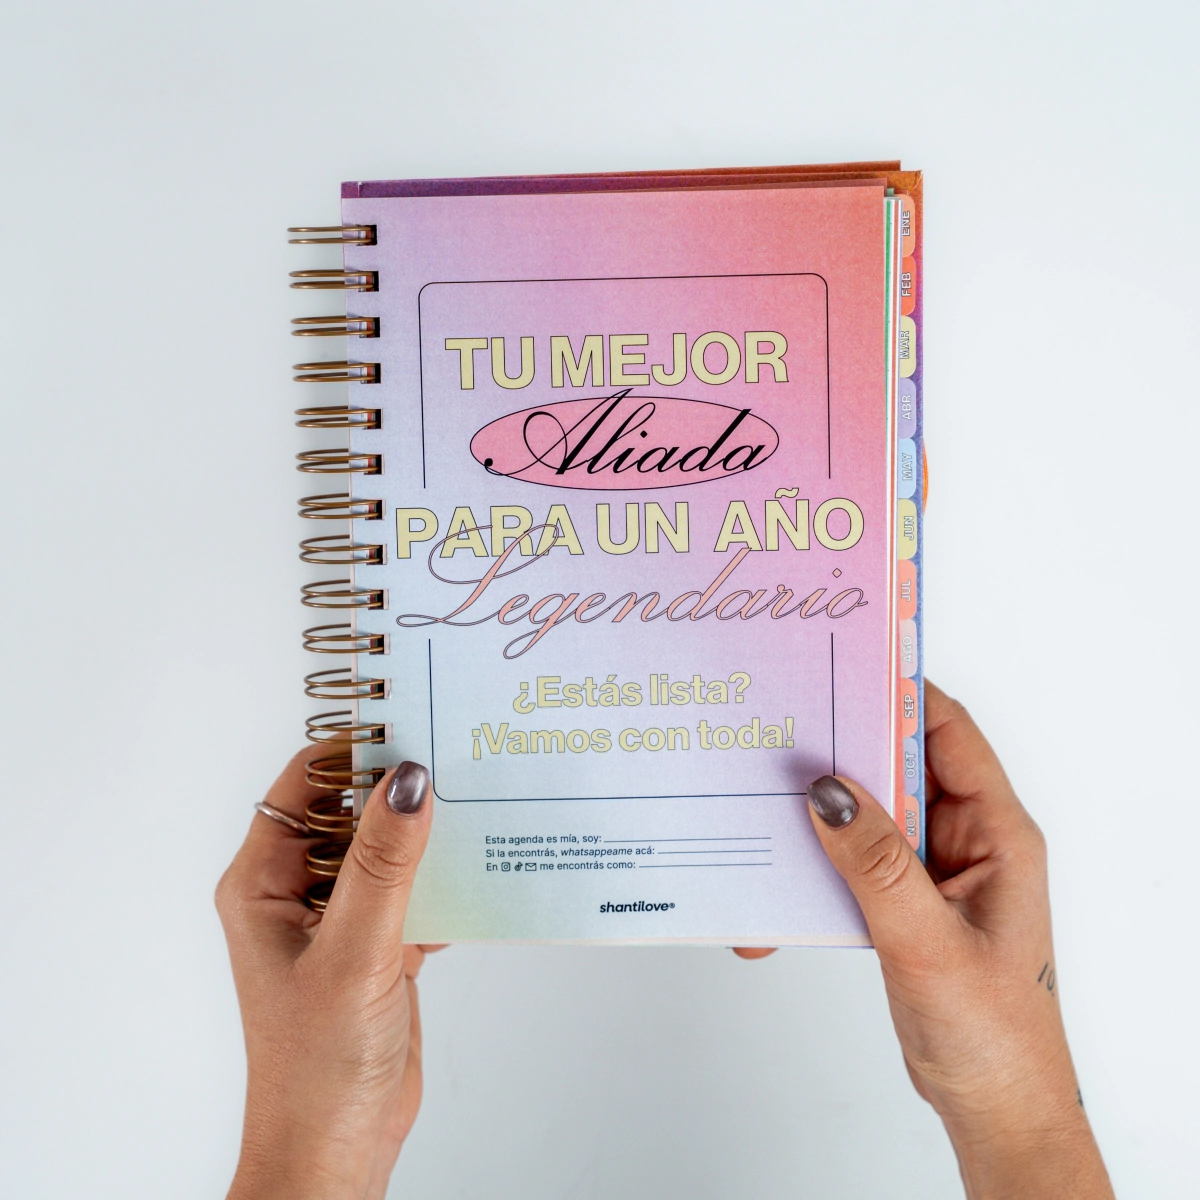 TU MEJOR
Aliada
PARA UN AÑO
Legendario
¿Estás lista?
¡Vamos con toda!
Esta agenda es mía, soy:
Si la encontrás, whatsappeame acá:
En me encontrás como:
shantilove®
ENE
FEB
MAR
ABR
MAY
JUN
JUL
AGO
SEP
OCT
NOV